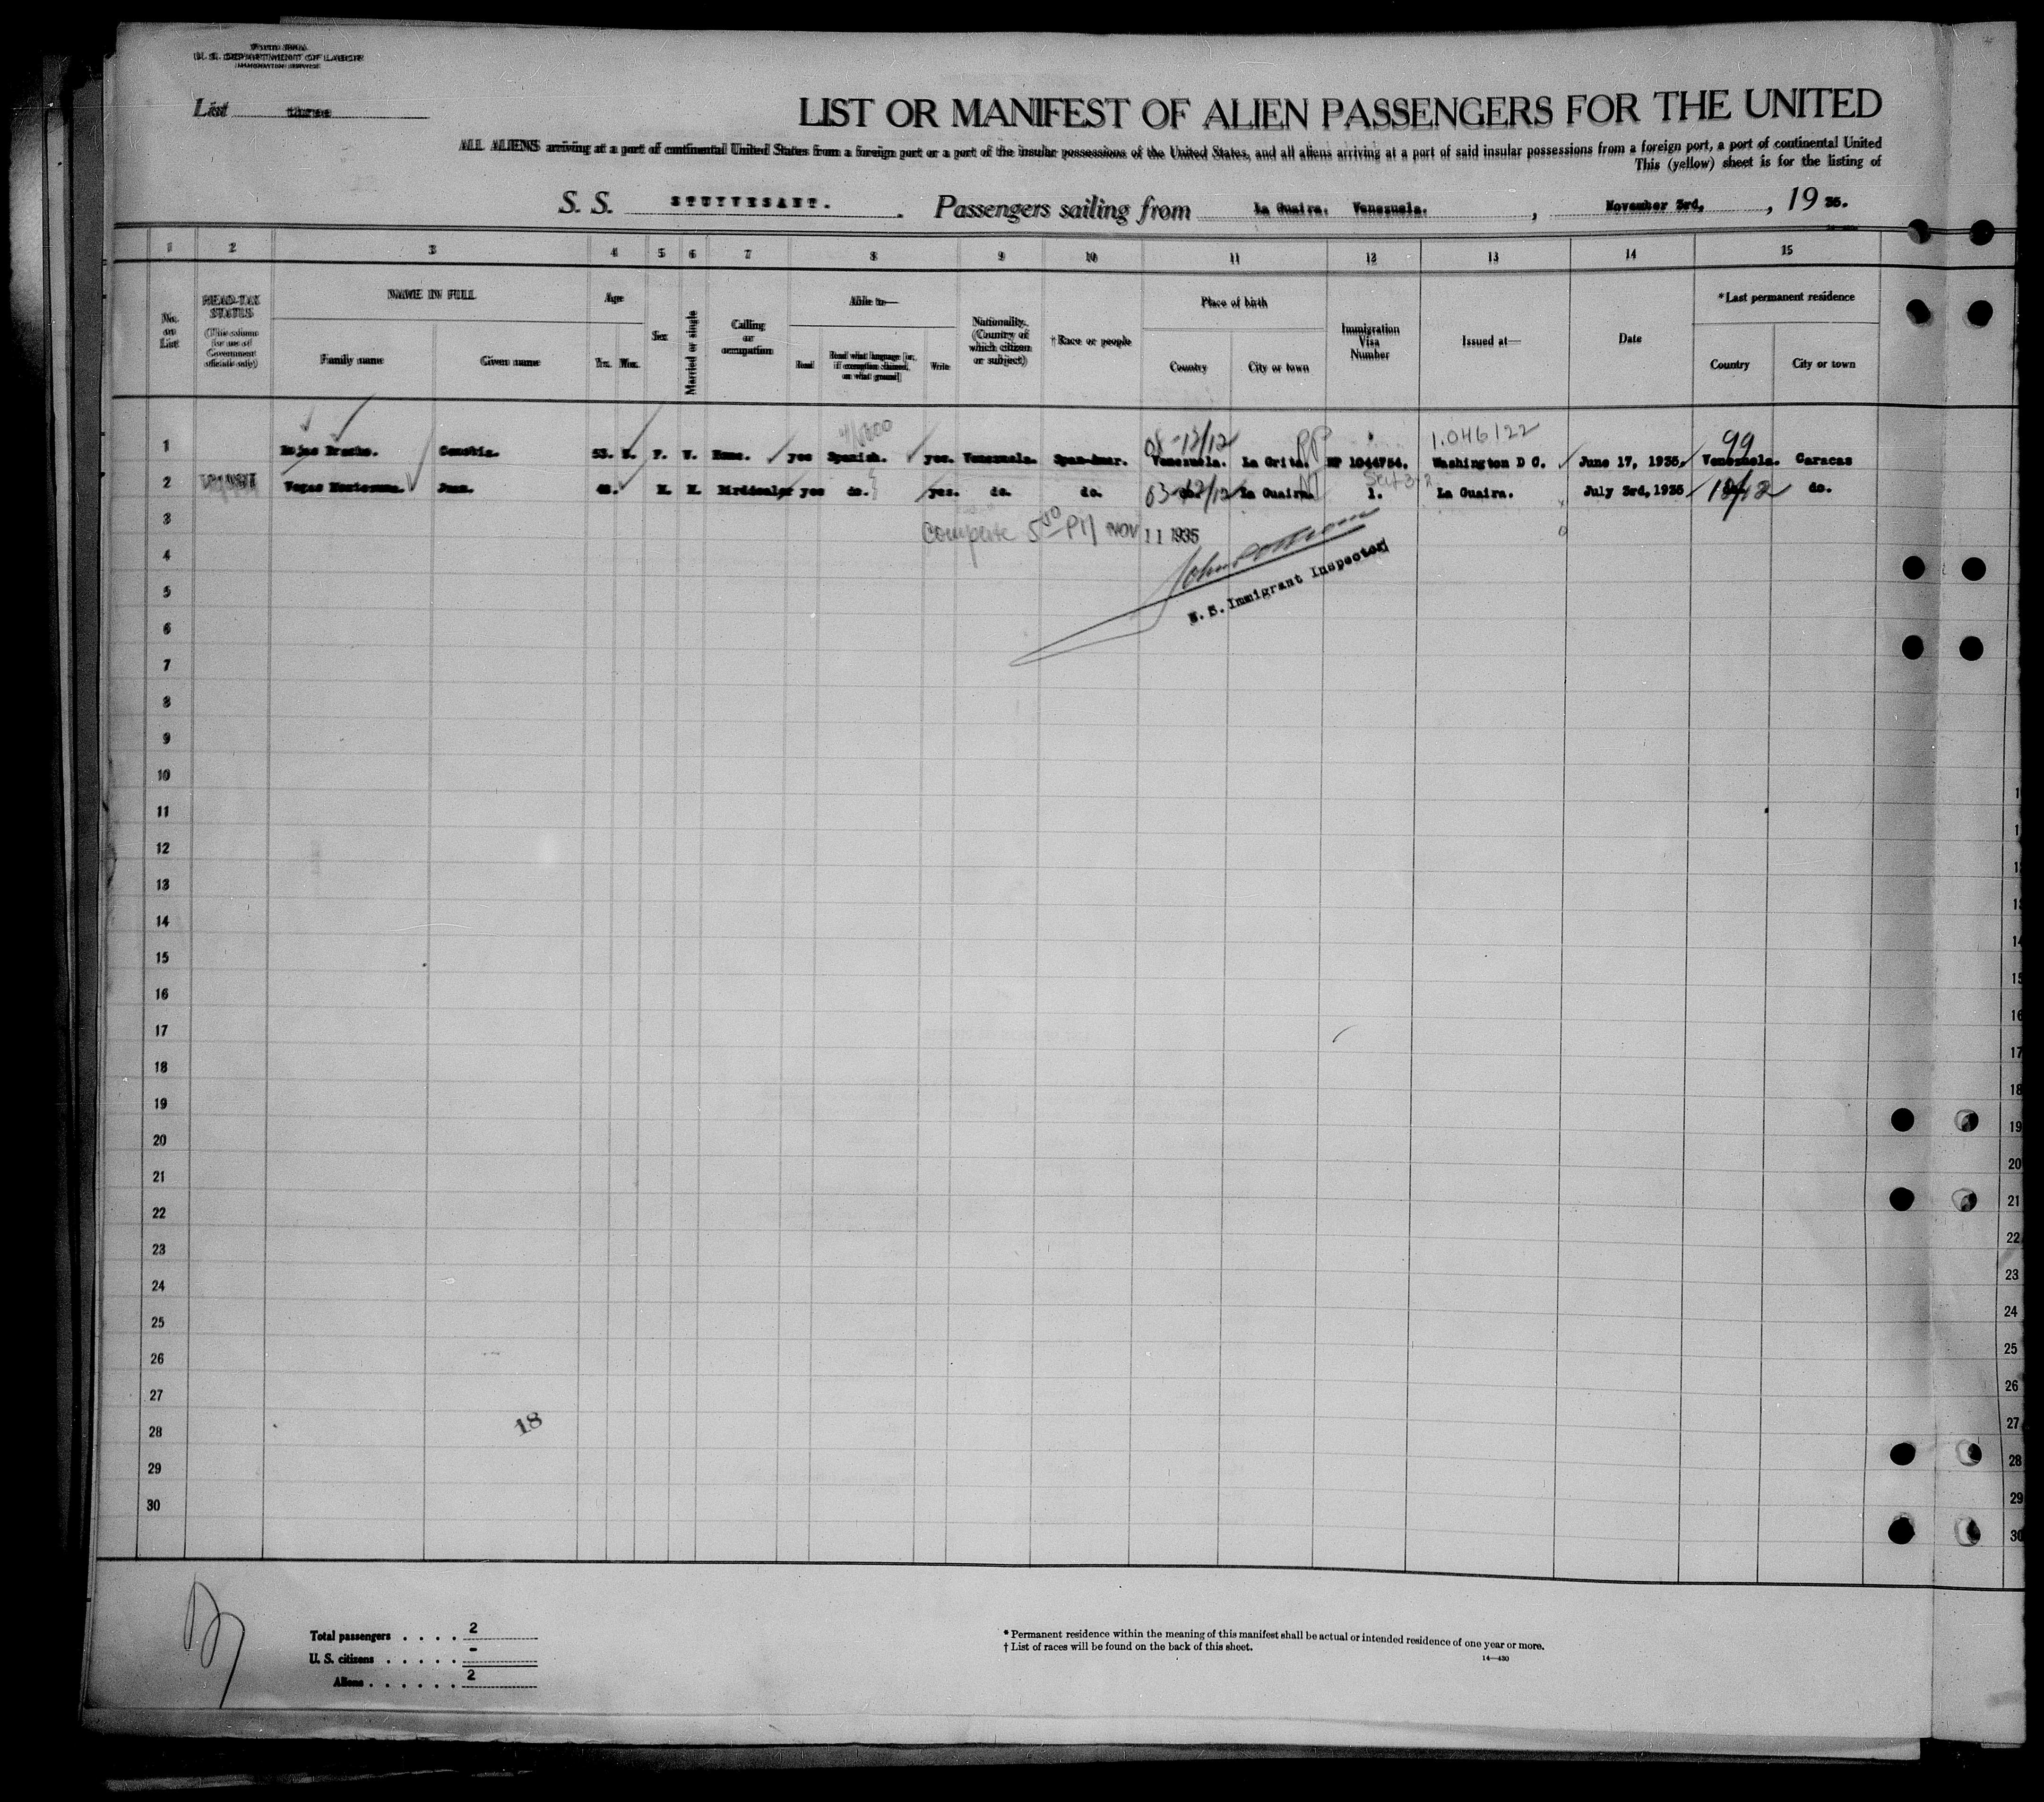 U. S. DEPARTMENT OF LABOR
IMMIGRATION SERVICE
List three
LIST OR MANIFEST OF ALIEN PASSENGERS FOR THE UNITED
ALL ALIENS arriving at a port of continental United States from a foreign port or a port of the insular possessions of the United States, and all aliens arriving at a port of said insular possessions from a foreign port, a port of continental United
This (yellow) sheet is for the listing of
S. S. STUYVESANT. Passengers sailing from La Guaira. Venezuela. , November 3rd, , 19 35.
1 2 3 4 5 6 7 8 9 10 11 12 13 14 15
No. on List
HEAD-TAX STATUS
(This column for use of Government officials only)
NAME IN FULL
Family name
Given name
Age
Yrs. Mos.
Sex
Married or single
Calling or occupation
Able to—
Read
Read what language [or, if exemption claimed, on what ground]
Write
Nationality. (Country of which citizen or subject)
† Race or people
Place of birth
Country
City or town
Immigration Visa Number
Issued at—
Date
* Last permanent residence
Country
City or town
08-12/12 PP 1.046122 99
1 Rojas 53. F. W. Home. yes Spanish. yes. Venezuela. Span-Amer. Venezuela. La Grita. 1044754. Washington D C. June 17, 1935. Venezuela. Caracas
2 TRANSIT Vegas Juan. M. M. yes do. yes. do. do. 03 12/12 La Guaira. 1. La Guaira. July 3rd, 1935 do.
3 Complete 5 50 PM NOV 11 1935
4
U. S. Immigrant Inspector
5
6
7
8
9
10
11
12
13
14
15
16
17
18
19
20
21
22
23
24
25
26
27
28 18
29
30
14
15
16
17
18
19
20
21
22
23
24
25
26
27
28
29
30
Total passengers . . . . 2
U. S. citizens . . . . . -
Aliens . . . . . . 2
* Permanent residence within the meaning of this manifest shall be actual or intended residence of one year or more.
† List of races will be found on the back of this sheet.
14—430